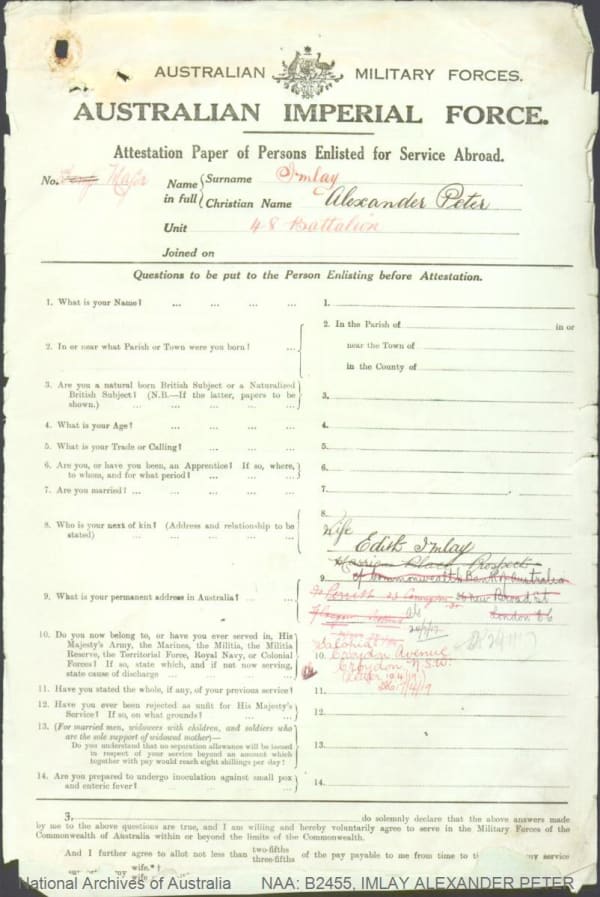 AUSTRALIAN MILITARY FORCES.
AUSTRALIAN IMPERIAL FORCE.
Attestation Paper of Persons Enlisted for Service Abroad.
No. Temp Major
Name in full { Surname Imlay
Christian Name Alexander Peter
Unit 48 Battalion
Joined on
Questions to be put to the Person Enlisting before Attestation.
1. What is your Name? ... ... ... ... 1.
2. In or near what Parish or Town were you born? ... 2. In the Parish of in or
near the Town of
in the County of
3. Are you a natural born British Subject or a Naturalized
British Subject? (N.B.—If the latter, papers to be
shown.) ... ... ... ... 3.
4. What is your Age? ... ... ... ... 4.
5. What is your Trade or Calling? ... ... ... 5.
6. Are you, or have you been, an Apprentice? If so, where,
to whom, and for what period? ... ... ... 6.
7. Are you married? ... ... ... ... ... 7.
8. Who is your next of kin? (Address and relationship to be
stated) ... ... ... ... 8.
Wife
Edith Imlay
Prospect
9. What is your permanent address in Australia? ... 9.
of Commonwealth Bank of Australia
Broad St
London EC
24/7/17
10. Do you now belong to, or have you ever served in, His
Majesty's Army, the Marines, the Militia, the Militia
Reserve, the Territorial Force, Royal Navy, or Colonial
Forces? If so, state which, and if not now serving,
state cause of discharge ... ... ... 10.
Croydon Avenue
Croydon N.S.W.
11. Have you stated the whole, if any, of your previous service? 11.
12. Have you ever been rejected as unfit for His Majesty's
Service? If so, on what grounds? ... ... 12.
13. (For married men, widowers with children, and soldiers who
are the sole support of widowed mother)—
Do you understand that no separation allowance will be issued
in respect of your service beyond an amount which
together with pay would reach eight shillings per day? 13.
14. Are you prepared to undergo inoculation against small pox
and enteric fever? ... ... ... ... 14.
I, do solemnly declare that the above answers made
by me to the above questions are true, and I am willing and hereby voluntarily agree to serve in the Military Forces of the
Commonwealth of Australia within or beyond the limits of the Commonwealth.
And I further agree to allot not less than two-fifths three-fifths of the pay payable to me from time to my service
my wife.*
wife
National Archives of Australia NAA: B2455, IMLAY ALEXANDER PETER